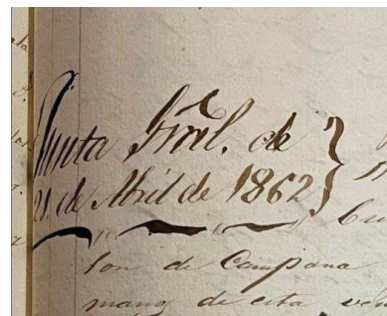 Junta Gral. de
21. de Abril de 1862
son de Campana
mang de esta